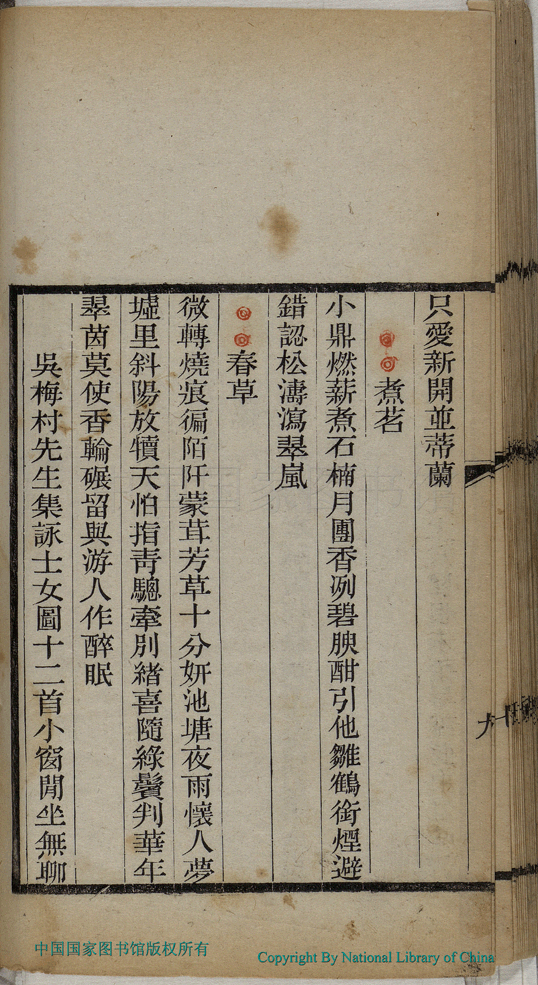 只愛新開並蒂蘭
煮茗
小鼎燃薪煮石楠月團香冽碧腴酣引他雛鶴銜煙避
錯認松濤瀉翠嵐
春草
微轉燒痕徧陌阡蒙茸芳草十分妍池塘夜雨懷人夢
墟里斜陽放犢天怕指青驄牽別緒喜隨綠鬢判華年
翠茵莫使香輪碾留與游人作醉眠
吳梅村先生集詠士女圖十二首小窗閒坐無聊
中国国家图书馆版权所有
Copyright By National Library of China